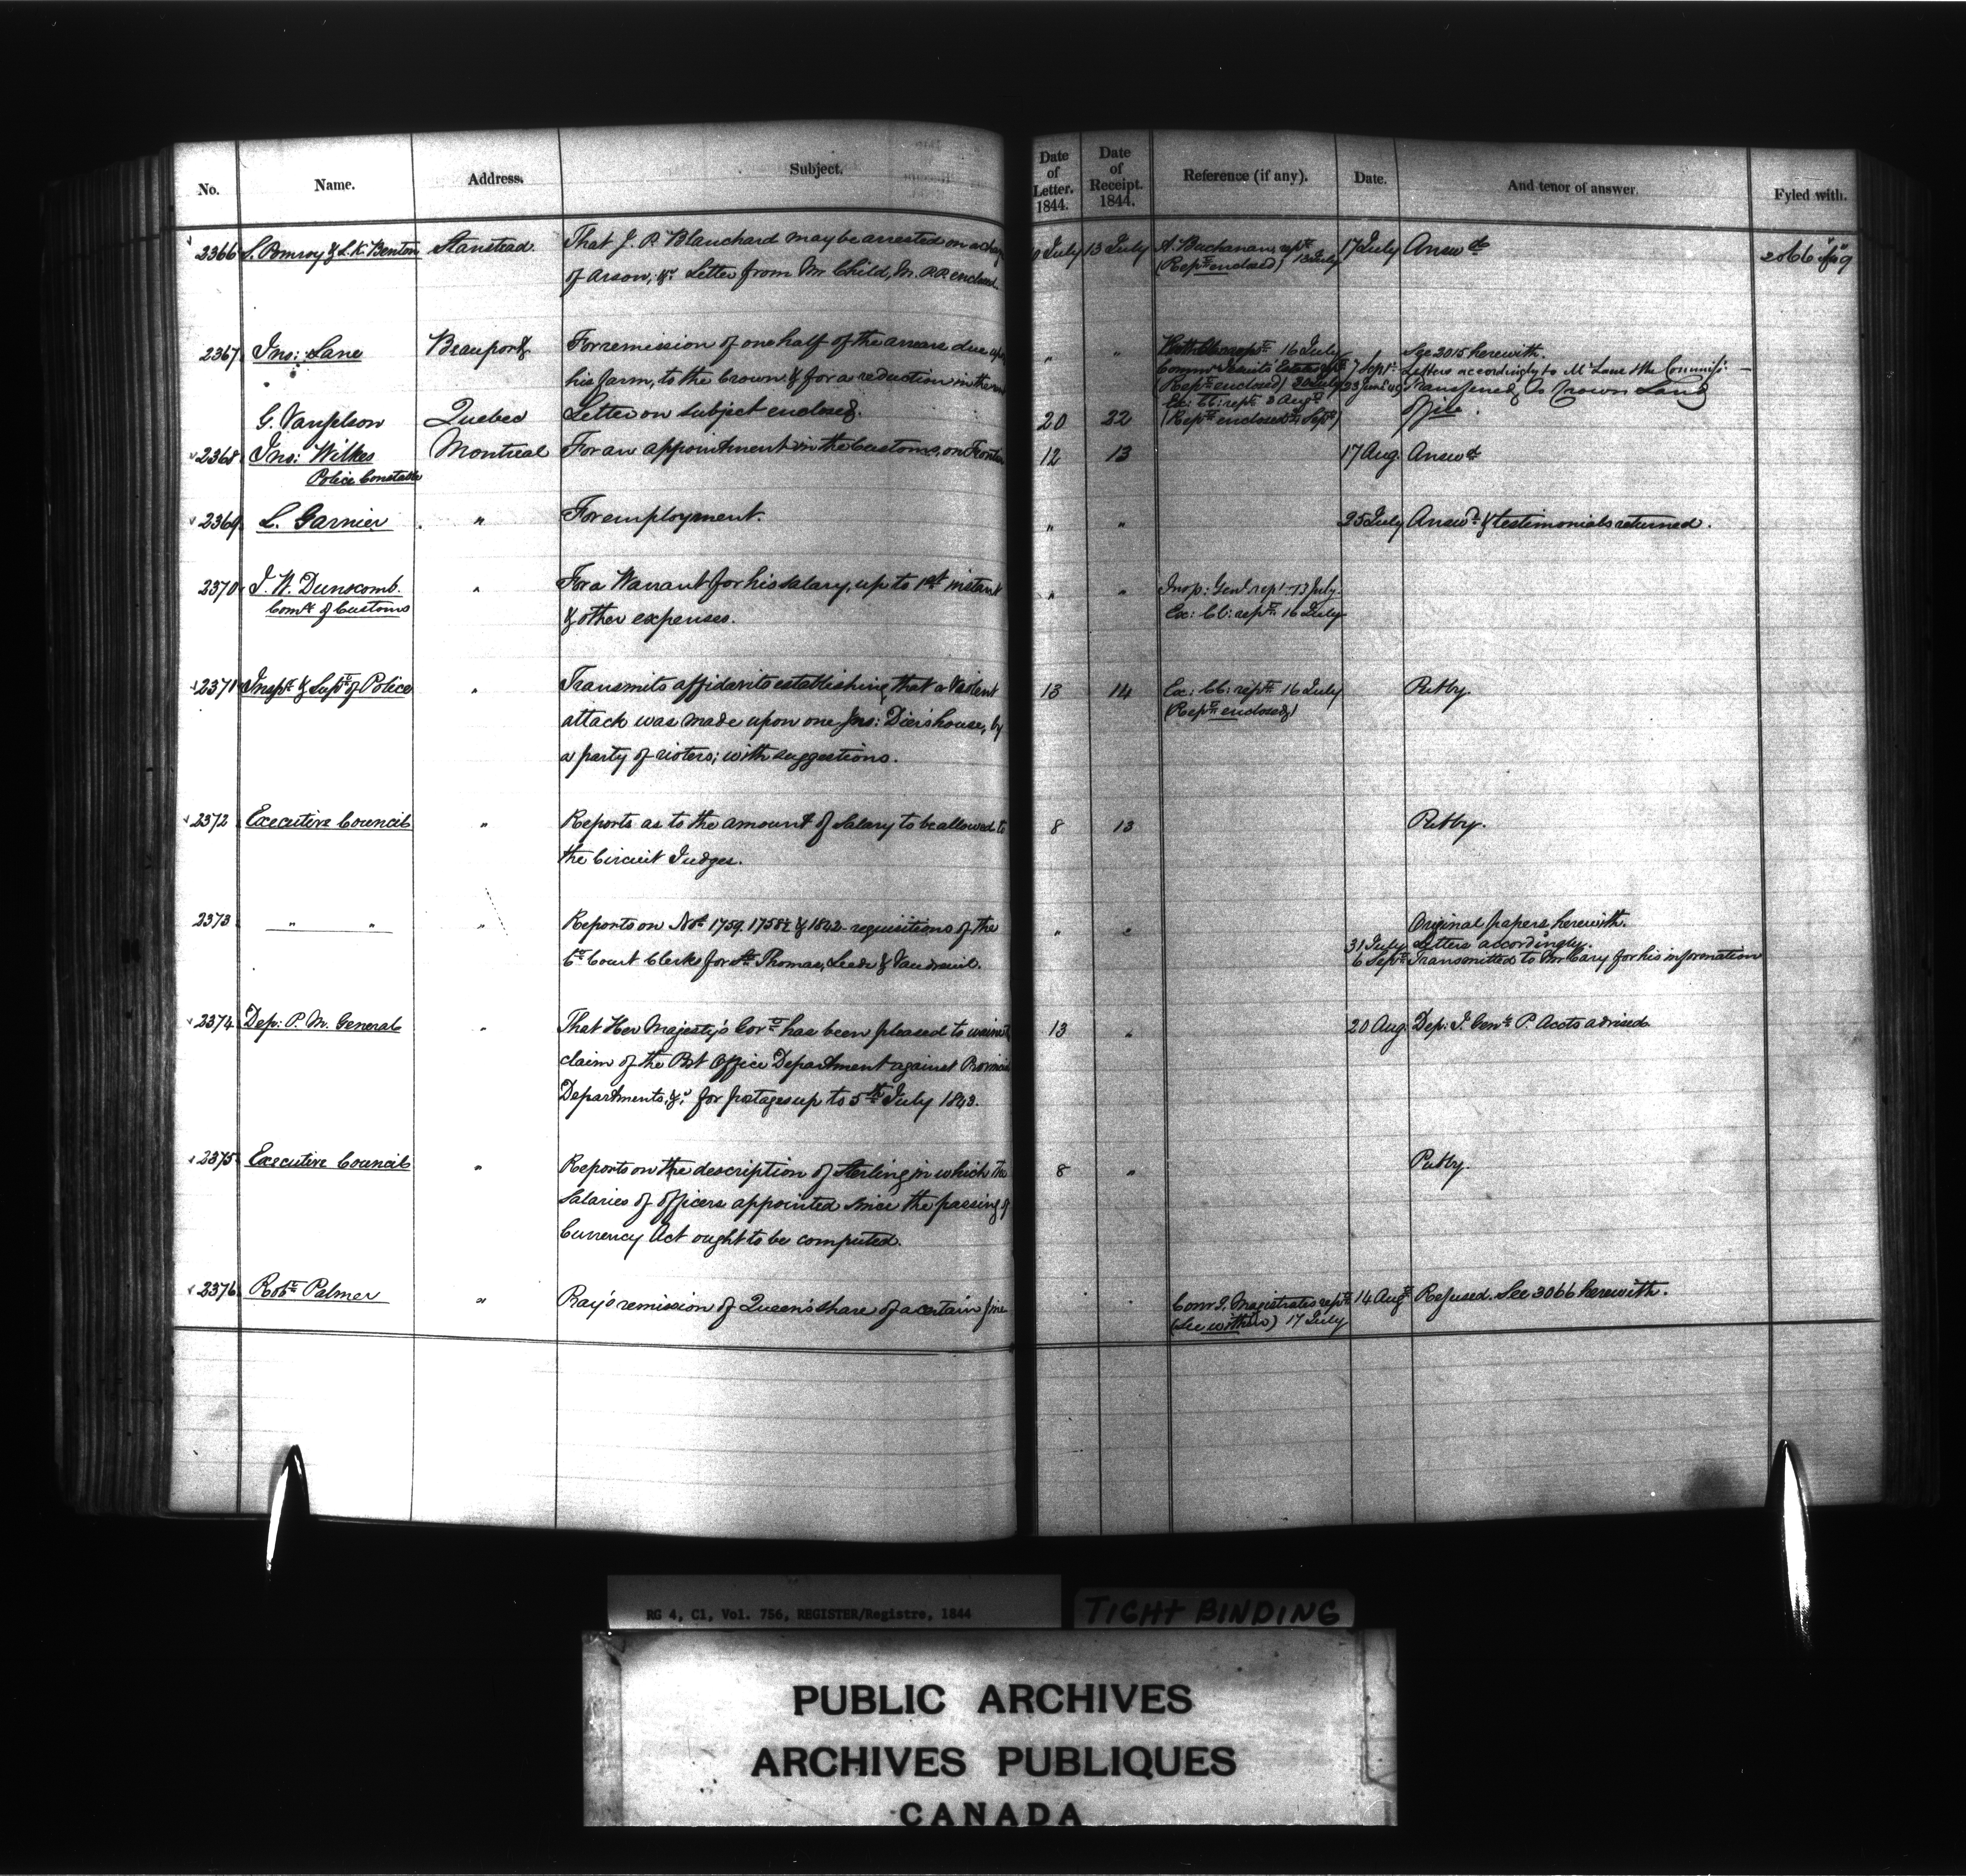 No. Name. Address. Subject. Date of Letter. 1844. Date of Receipt. 1844. Reference (if any). Date. And tenor of answer. Fyled with.
2366 S. Pomroy & L. K. Benton Stanstead. That J. P. Blanchard may be arrested on a July 13 July A. Buchanan's rept 13 July 17 July Answd
of Arson, &c. Letter from Mr Child, M.P.P. enclosed. (Rept enclosed)
2367 Jno: Lane Beauport. For remission of one half of the arrears due upon " " 16 July See 2015 herewith.
his farm, to the Crown & for a reduction in the 7 Sept. Letters accordingly to Mr Lane & the Commiss:
(Rept enclosed) 20 July Transferred to Crown Land
G. Vanfelson Quebec Letter on subject enclosed. 20 22 Ex: Cl: rept 8 Augt Office.
(Rept enclosed Sept)
2368 Jno: Wilkes Montreal For an appointment in the Customs, on Frontier 12 13 17 Aug. Answd
Police Constable
2369 L. Garnier " For employment. " " 25 July Answd & testimonials returned.
2370 J. W. Dunscomb. " For a Warrant for his salary, up to 1st instant " " Insp: Genl rept 13 July
Comr of Customs & other expenses. Ex: Cl: rept 16 July
2371 Inspr & Supt of Police " Transmits affidavits establishing that a violent 13 14 Ex: Cl: rept 16 July Putby.
attack was made upon one Jno: Dier's house, by (Rept enclosed)
a party of rioters; with suggestions.
2372 Executive Council " Reports as to the amount of Salary to be allowed to 8 13 Putby.
the Circuit Judges.
2373 " " " Reports on Nos 1759. 1758½ & 1842 - requisitions of the " " Original papers herewith.
Ct Court Clerks for St Thomas, Leeds & Vaudreuil. 31 July Letters accordingly.
6 Sept Transmitted to Mr Cary for his information
2374 Dep: P. M. General " That Her Majesty's Govt has been pleased to waive 13 " 20 Aug. Dep: I. Genl P. Accts advised.
claim of the Post Office Department against Provincial
Departments, &c. for postages up to 5th July 1843.
2375 Executive Council " Reports on the description of sterling in which the 8 " Putby.
Salaries of officers appointed since the passing of
Currency Act ought to be computed.
2376 Robt Palmer " Pray's remission of Queen's share of a certain fine " " Comr I. Magistrates rept 14 Augt Refused. See 3066 herewith.
(See within) 17 July
RG 4, C1, Vol. 756, REGISTER/Registre, 1844
TIGHT BINDING
PUBLIC ARCHIVES
ARCHIVES PUBLIQUES
CANADA